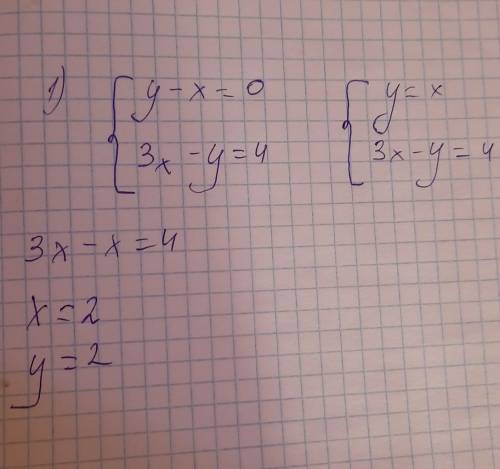 1) { y - x = 0   { y = x
3x - y = 4   3x - y = 4
3x - x = 4
x = 2
y = 2